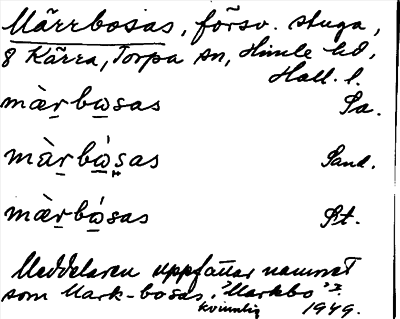 Märrbosas, försv. stuga,
8 Kärra, Torpa sn, Himle hd,
Hall. l.
màr̲bω̲sas Sa.
màr̲bώ̲s̤as Sand.
màr̲bώ̲sas St.
Meddelaren uppfattar namnet
som Mark-bosas. "Markbo"
kvinnlig 1949.